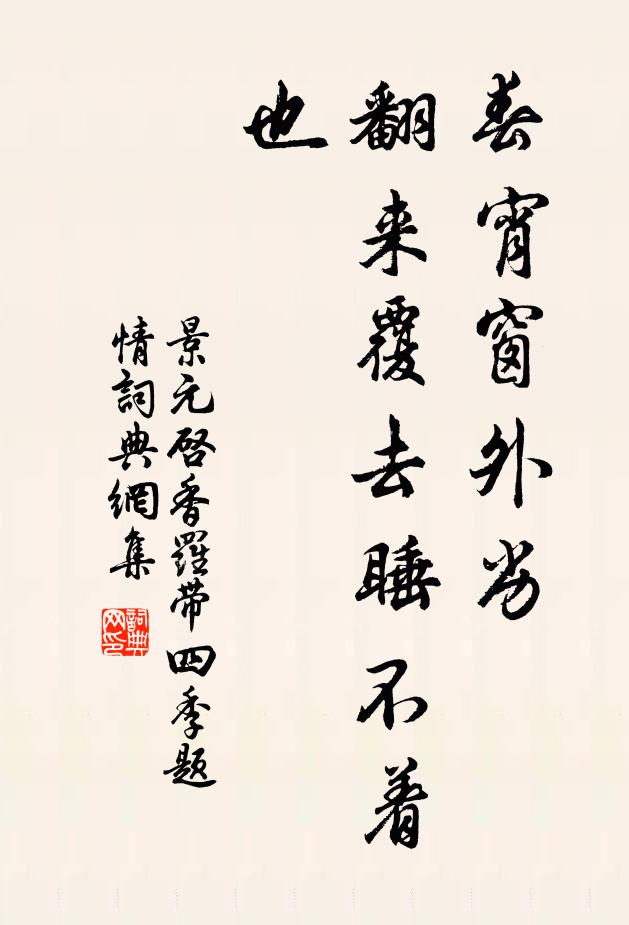 春宵窗外
翻来覆去睡不着
也
景元啓香羅带四季题
情詞典網集
詞典
网印